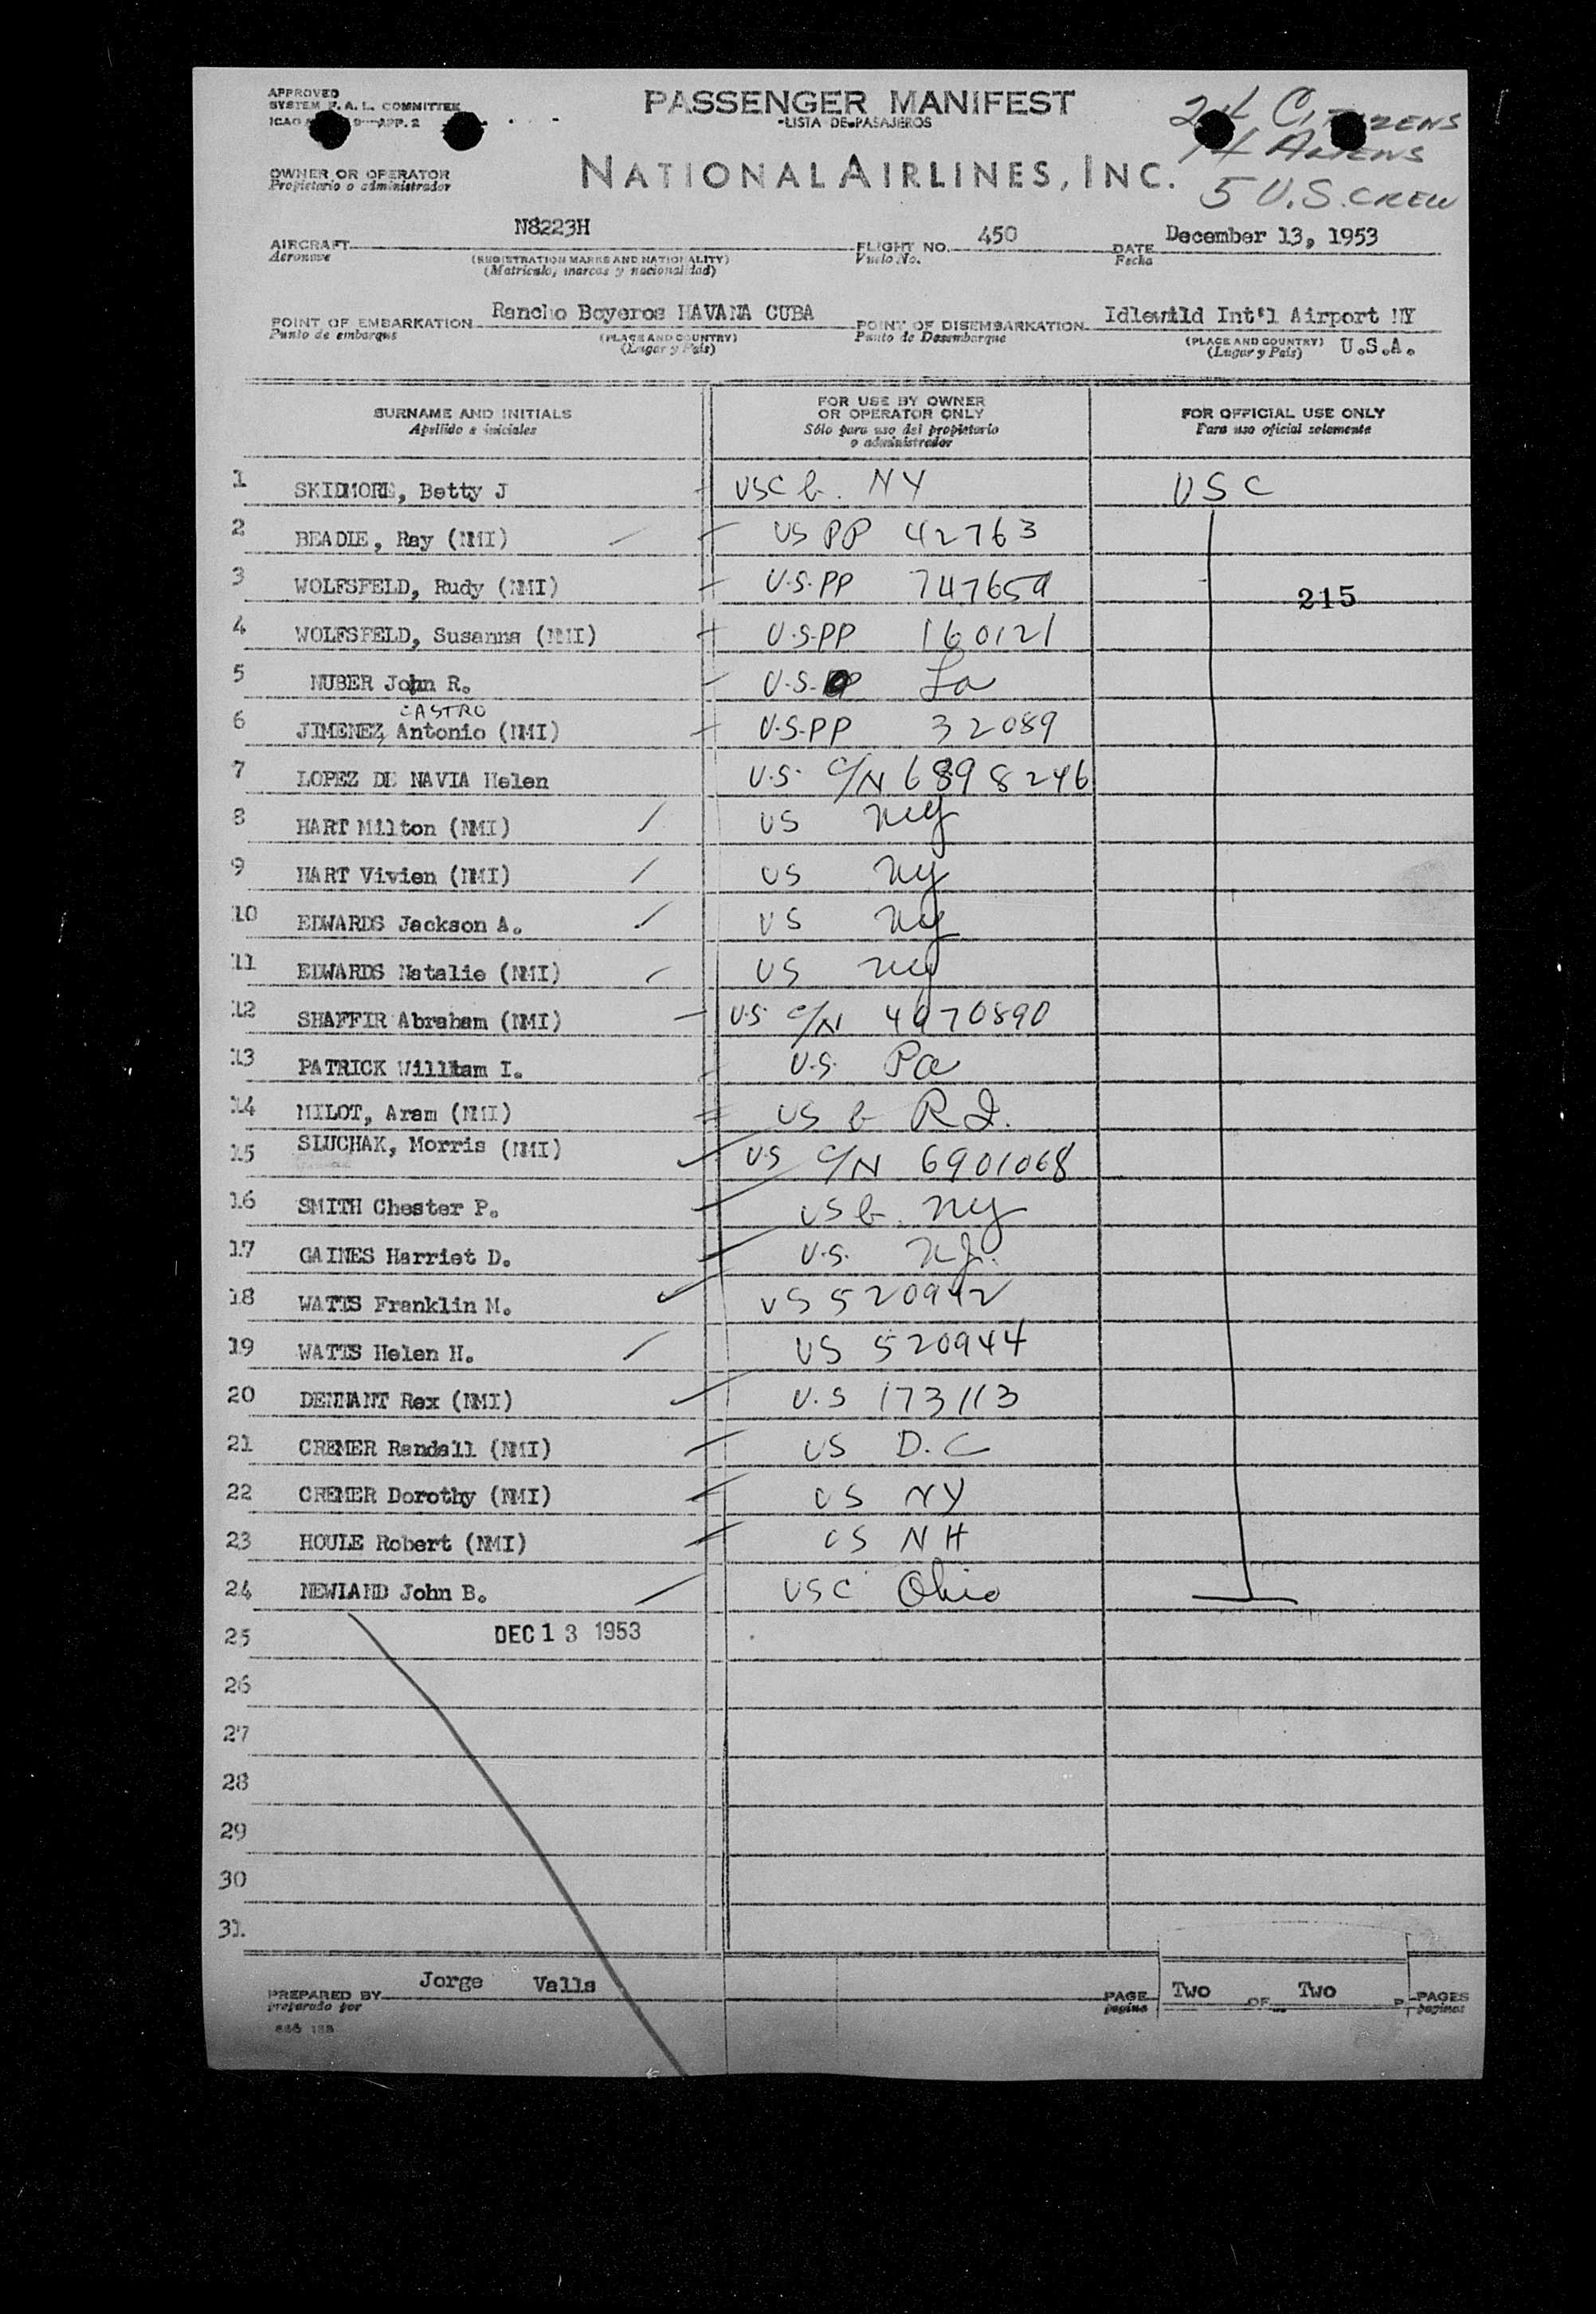 APPROVED
SYSTEM F. A. L. COMMITTEE
ICAO 9—APP. 2
PASSENGER MANIFEST
-LISTA DE PASAJEROS
24 CITIZENS
14 ALIENS
5 U.S. CREW
OWNER OR OPERATOR
Propietario o administrador
NATIONAL AIRLINES, INC.
AIRCRAFT N8223H FLIGHT NO. 450 DATE December 13, 1953
Aeronave (REGISTRATION MARKS AND NATIONALITY) Vuelo No. Fecha
(Matrícula, marcas y nacionalidad)
POINT OF EMBARKATION Rancho Boyeros HAVANA CUBA POINT OF DISEMBARKATION Idlewild Int'l Airport NY
Punto de embarque (PLACE AND COUNTRY) Punto de Desembarque (PLACE AND COUNTRY) U.S.A.
(Lugar y País) (Lugar y País)
SURNAME AND INITIALS FOR USE BY OWNER OR OPERATOR ONLY FOR OFFICIAL USE ONLY
Apellido e iniciales Sólo para uso del propietario o administrador Para uso oficial solamente
1 SKIDMORE, Betty J USC b. NY USC
2 BEADIE, Ray (NMI) US PP 42763
3 WOLFSFELD, Rudy (NMI) U.S.PP 747659
215
4 WOLFSFELD, Susanna (NMI) U.S.PP 160121
5 NUBER John R. U.S. La
CASTRO
6 JIMENEZ, Antonio (NMI) U.S.PP 32089
7 LOPEZ DE NAVIA Helen U.S. C/N 6898246
8 HART Milton (NMI) US NY
9 HART Vivien (NMI) US NY
10 EDWARDS Jackson A. US NY
11 EDWARDS Natalie (NMI) US NY
12 SHAFFIR Abraham (NMI) U.S. C/N 4970890
13 PATRICK William I. U.S. Pa
14 MILOT, Aram (NMI) US b R.I.
15 SLUCHAK, Morris (NMI) US C/N 6901068
16 SMITH Chester P. US b. NY
17 GAINES Harriet D. U.S. N.J.
18 WATTS Franklin M. US 520942
19 WATTS Helen H. US 520944
20 DENNANT Rex (NMI) U.S 173113
21 CREMER Randall (NMI) US D.C
22 CREMER Dorothy (NMI) US NY
23 HOULE Robert (NMI) US NH
24 NEWLAND John B. USC Ohio
25 DEC 13 1953
26
27
28
29
30
31.
PREPARED BY Jorge Valls PAGE Two OF Two PAGES
preparado por pagina paginas